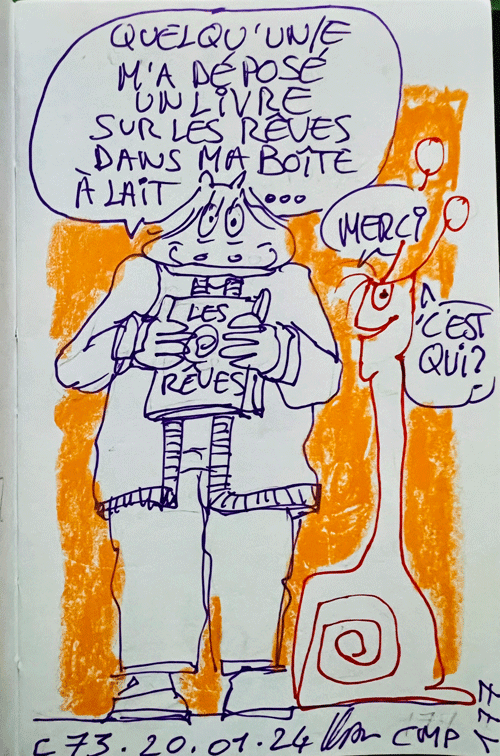 QUELQU'UN/E
M'A DÉPOSÉ
UN LIVRE
SUR LES RÊVES
DANS MA BOÎTE
À LAIT ...
MERCI
C'EST
QUI?
LES
RÊVES
C73.20.01.24
CMP
177